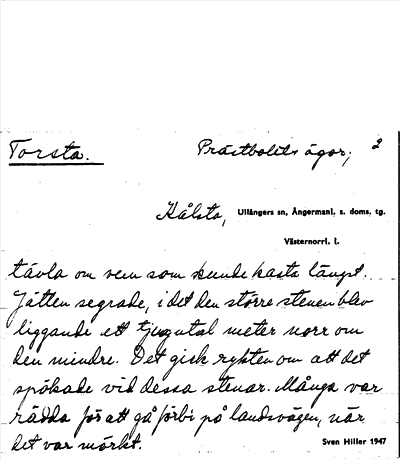 Torsta. Prästbolets ägor, 2
Hålsta, Ullångers sn, Ångermanl. s. doms. tg.
Västernorrl. l.
tävla om vem som kunde kasta längst.
Jätten segrade, i det den större stenen blev
liggande ett tjugutal meter norr om
den mindre. Det gick rykten om att det
spökade vid dessa stenar. Många var
rädda för att gå förbi på landsvägen, när
det var mörkt. Sven Hiller 1947